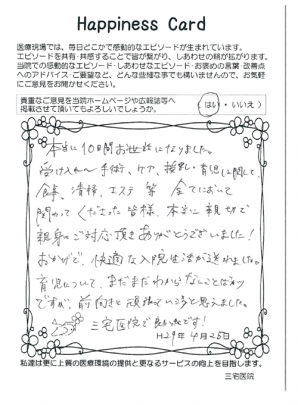 Happiness Card
医療現場では、毎日どこかで感動的なエピソードが生まれています。
エピソードを共有・共感することで皆が繋がり、しあわせの絆が拡がります。
当院での感動的なエピソード・しあわせなエピソード・お褒めの言葉・改善点
へのアドバイス・ご要望など、どんな些細な事でも構いませんので、お気軽
にご意見をお聞かせください。
貴重なご意見を当院ホームページや広報誌等へ
掲載させて頂いてもよろしいでしょうか。
( はい ・ いいえ )
本当に10日間お世話になりました。
受け入れ〜手術、ケア、授乳・育児に関して、
食事、清掃、エステ 等 全てにおいて
関わってくださった皆様、本当に親切で
親身なご対応頂きありがとうございました!
おかげで、快適な入院生活が送れました。
育児について、まだまだわからないことばかり
ですが、前向きに頑張っていこうと思えました。
三宅医院で良かったです!
H29年4月25日
私達は更に上質の医療環境の提供と更なるサービスの向上を目指します。
三宅医院